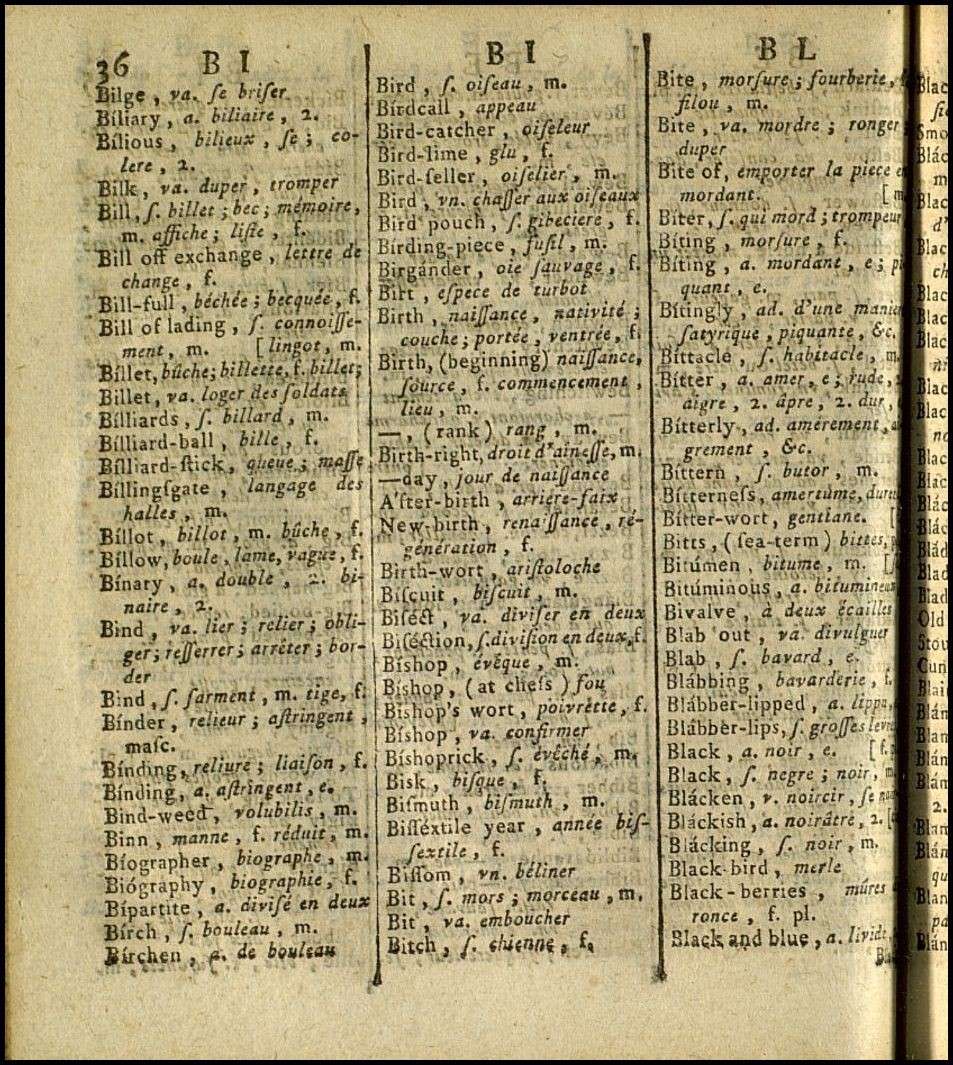 36 B I
Bilge, va. ſe briſer
Bíliary, a. biliaire, 2.
Bílious, bilieux, ſe; co-
lere, 2.
Bilk, va. duper, tromper
Bill, ſ. billet; bec; mémoire,
m. affiche; liſte, f.
Bill off exchange, lettre de
change, f.
Bill-full, béchée; becquée, f.
Bill of lading, ſ. connoiſſe-
ment, m. [lingot, m.
Bíllet, bûche; billette, f. billet;
Billet, va. loger des ſoldats
Bílliards, ſ. billard, m.
Bílliard-ball, bille, f.
Bílliard-ſtick, queue; maſſe
Bíllingſgate, langage des
halles, m.
Bíllot, billot, m. bûche, f.
Bíllow, boule, lame, vague, f.
Bínary, a. double, 2. bi-
naire, 2.
Bind, va. lier; relier; obli-
ger; reſſerrer; arrêter; bor-
der
Bind, ſ. ſarment, m. tige, f.
Bínder, relieur; aſtringent,
maſc.
Bínding, reliure; liaiſon, f.
Bínding, a. aſtringent, e.
Bind-weed, volubilis, m.
Binn, manne, f. réduit, m.
Bíographer, biographe, m.
Biógraphy, biographie, f.
Bípartite, a. diviſé en deux
Bírch, ſ. bouleau, m.
Bírchen, a. de bouleau
B I
Bird, ſ. oiſeau, m.
Bírdcall, appeau
Bird-catcher, oiſeleur
Bird-lime, glu, f.
Bird-ſeller, oiſelier, m.
Bird, vn. chaſſer aux oiſeaux
Bird pouch, ſ. gibeciere, f.
Bírding-piece, fuſil, m.
Birgánder, oie ſauvage, f.
Birt, eſpece de turbot
Birth, naiſſance, nativité;
couche; portée, ventrée, f.
Birth, (beginning) naiſſance,
ſource, f. commencement,
lieu, m.
—, (rank) rang, m.
Birth-right, droit d'aineſſe, m.
—day, jour de naiſſance
A'fter-birth, arriere-faix
New-birth, renaiſſance, ré-
génération, f.
Birth-wort, ariſtoloche
Biſcuit, biſcuit, m.
Biſéct, va. diviſer en deux
Biſéction, ſ. diviſion en deux, f.
Bíshop, évêque, m.
Bíshop, (at cheſs) fou
Bíshop's wort, poivrette, f.
Bíshop, va. confirmer
Bíshoprick, ſ. évêché, m.
Bisk, biſque, f.
Biſmuth, biſmuth, m.
Biſſéxtile year, année biſ-
ſextile, f.
Biſſom, vn. béliner
Bit, ſ. mors; morceau, m.
Bit, va. emboucher
Bitch, ſ. chienne, f.
B L
Bite, morſure; fourberie,
filou, m.
Bite, va. mordre; ronger
duper
Bite of, emporter la piece
mordant. [
Bíter, ſ. qui mord; trompeur
Bíting, morſure, f.
Bíting, a. mordant, e; pi
quant, e.
Bítingly, ad. d'une manie
ſatyrique, piquante, &c.
Bíttacle, ſ. habitacle, m.
Bítter, a. amer, e; rude,
aigre, 2. âpre, 2. dur,
Bítterly, ad. amérement,
grement, &c.
Bíttern, ſ. butor, m.
Bítterneſs, amertume, dure
Bítter-wort, gentiane. [
Bitts, (ſea-term) bittes,
Bitúmen, bitume, m. [
Bitúminous, a. bitumineux
Bivalve, à deux écailles
Blab out, va. divulguer
Blab, ſ. bavard, e.
Blábbing, bavarderie, f.
Blábber-lipped, a. lippu,
Blábber-lips, ſ. groſſes levre
Black, a. noir, e. [f.
Black, ſ. negre; noir, m.
Blácken, v. noircir, ſe
Bláckish, a. noirâtre, 2. [
Blácking, ſ. noir, m.
Black-bird, merle
Black-berries, mûres
ronce, f. pl.
Black and blue, a. livide,
Blac
Smo
Blác
m
Blac
d'
Blac
ch
Blac
Blac
Blac
Blac
Blac
no
Blac
Blac
Blác
Blác
Blád
Blad
Blad
Old
Stou
Cun
Blai
Blám
Blam
Blám
Blám
2.
Blam
Blán
qu
Blan
pa
Blán